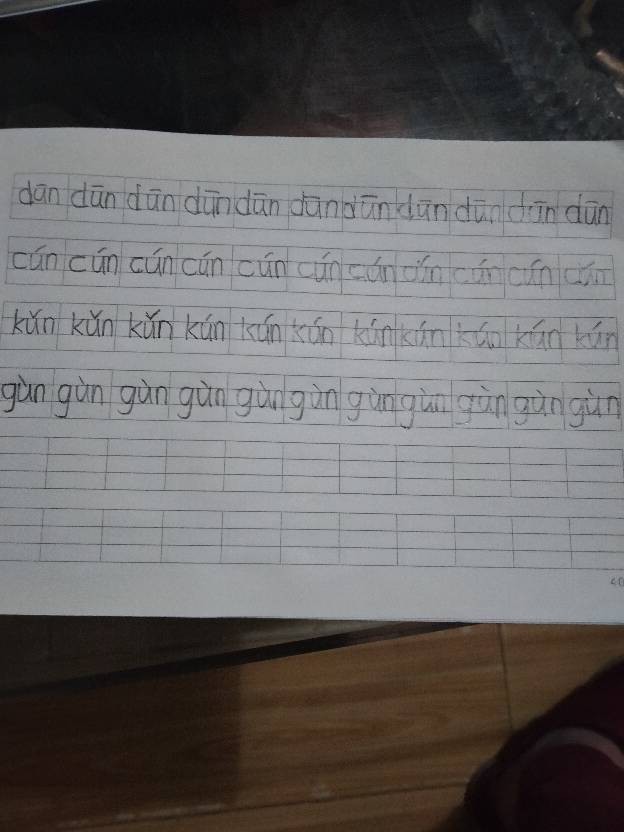 dūn dūn dūn dūn dūn dūn dūn dūn dūn dūn dūn
cún cún cún cún cún cún cún cún cún cún cún
kǔn kǔn kǔn kún kún kún kún kún kún kún kún
gùn gùn gùn gùn gùn gùn gùn gùn gùn gùn gùn
40